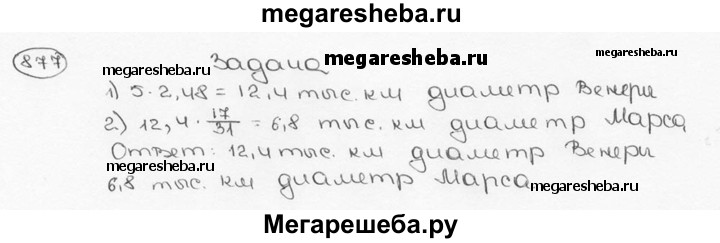 megaresheba.ru
877
Задача
megaresheba.ru
megaresheba.ru
megaresheba.ru
1) 5·2,48 = 12,4 тыс. км диаметр Венеры
2) 12,4 · 17/31 = 6,8 тыс. км диаметр Марса
Ответ: 12,4 тыс. км диаметр Венеры
megaresheba.ru
6,8 тыс. км диаметр Марса
megaresheba.ru
Мегарешеба.ру